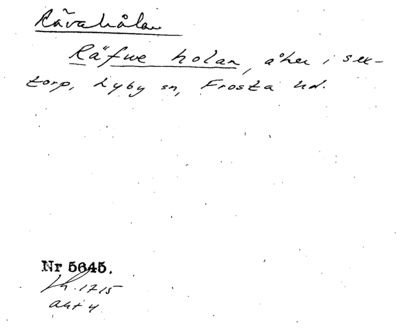 Rävahålan
Räfwe holan, åker i sex-
torp, Lyby sn, Frosta hd.
Nr 5645.
Lh. 1715
akt 4